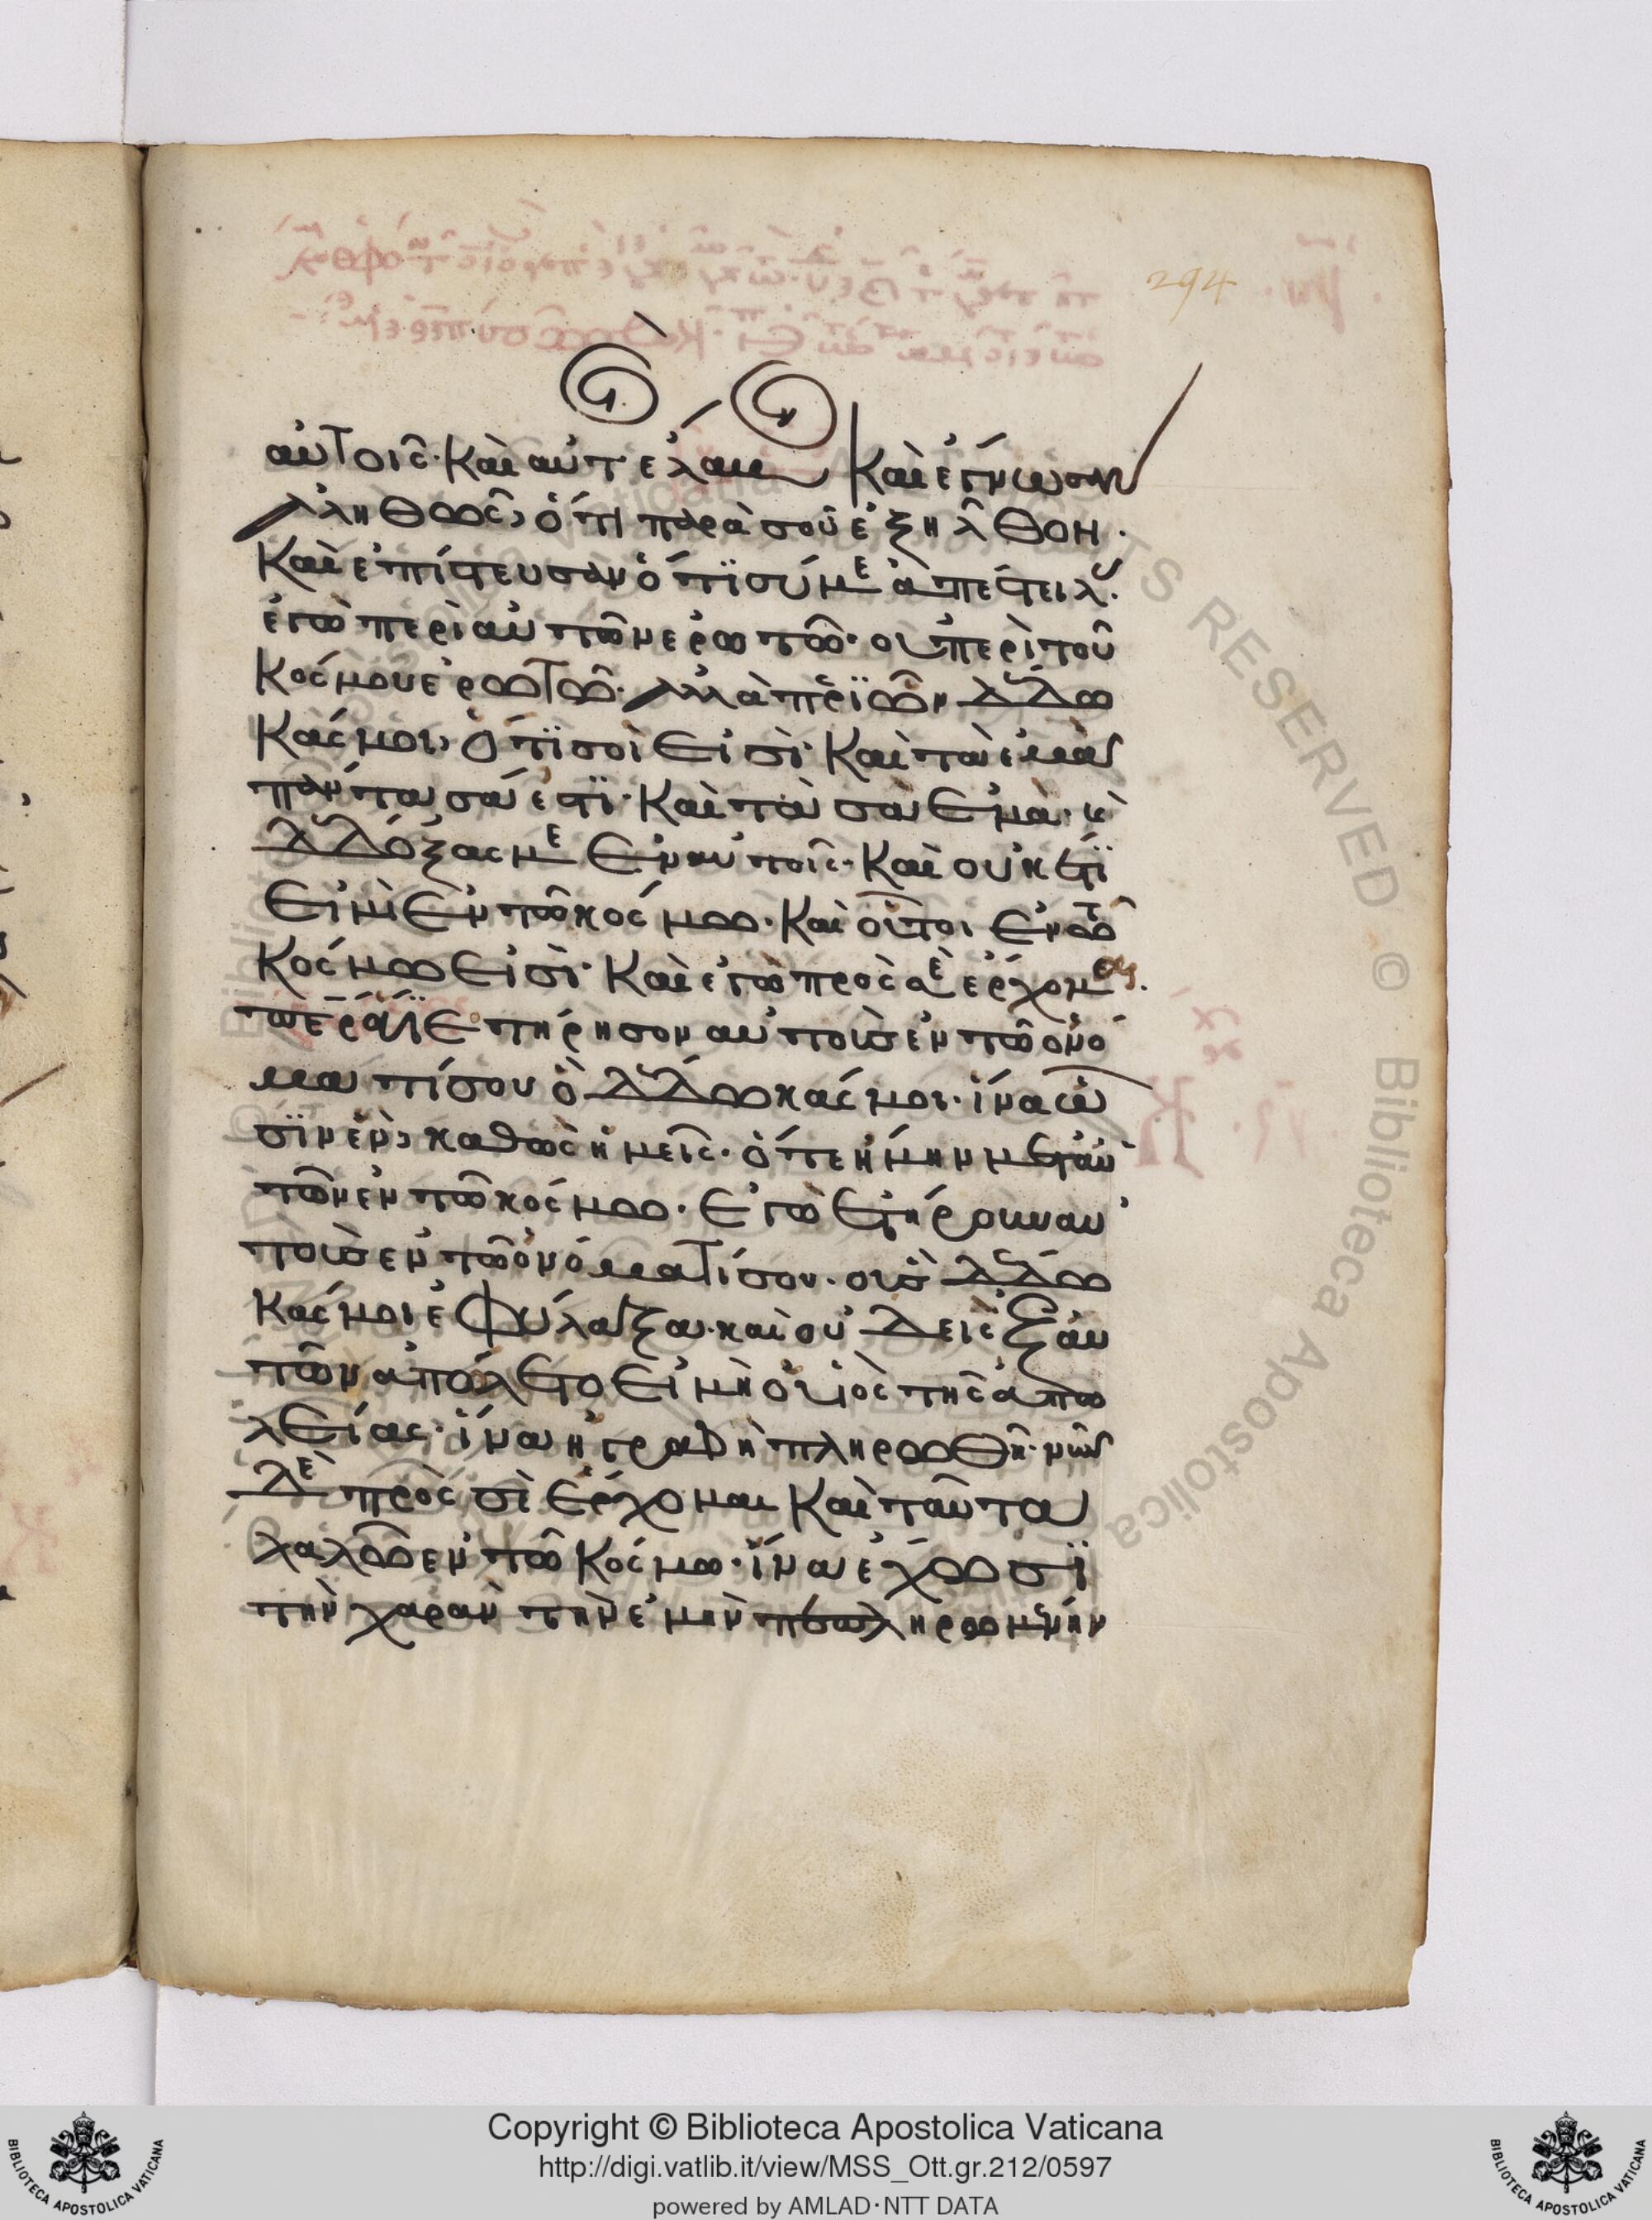 294
αὐτοῖς· καὶ αὐτ ἔλαβ καὶ ἔγνωσαν
ἀληθῶς, ὅτι παρὰ σοῦ ἐξῆλθον.
καὶ ἐπίστευσαν ὅτϊ σύ με ἀπέστειλ.
ἐγὼ περὶ αὐτῶν ἐρωτῶ· οὐ περὶ τοῦ
κόσμου ἐρωτῶ. ἀλλὰ περῒ ὧν δέδω
κάς μοι, ὅτϊ σοὶ εἰσὶ· καὶ τὰ ἐμὰ
πάντα σά ἐστϊ· καὶ τὰ σὰ ἐμὰ. κὲ
δεδόξασμε ἐν αὐτοῖς. καὶ οὐκέτϊ
εἰμὶ ἐν τῶ κόσμω. καὶ οὗτοι ἐν τῶ
κόσμω εἰσὶ· καὶ ἐγὼ πρὸς σὲ ἔρχομαι.
περ ἅγϊε τήρησον αὐτοὺς ἐν τῶ ὀνό
ματί σου ὃ δέδωκάς μοι. ἵνα ὦ
σϊν ἓν, καθὼς ἡμεῖς. ὅτε ἤμην μετ αὐ
τῶν ἐν τῶ κόσμω. ἐγὼ ἐτήρουν αὐ
τοὺς ἐν τῶ ὀνόματί σου. οὓς δέδω
κάς μοι ἐφύλαξα. καὶ οὐδεὶς ἐξ αὐ
τῶν ἀπόλετο εἰ μὴ ὁ υἱὸς τῆς ἀπω
λείας. ἵνα ἡ γραφὴ πληρωθῆ. νῦν
δὲ πρὸς σὲ ἔρχομαι καὶ ταῦτα
λαλῶ ἐν τῶ κόσμω. ἵνα ἔχωσϊ
τὴν χαρὰν τὴν ἐμὴν πεπληρωμένην
MENTS RESERVED © Biblioteca Apostolica
Copyright © Biblioteca Apostolica Vaticana
http://digi.vatlib.it/view/MSS_Ott.gr.212/0597
powered by AMLAD·NTT DATA
BIBLIOTECA APOSTOLICA VATICANA
BIBLIOTECA APOSTOLICA VATICANA